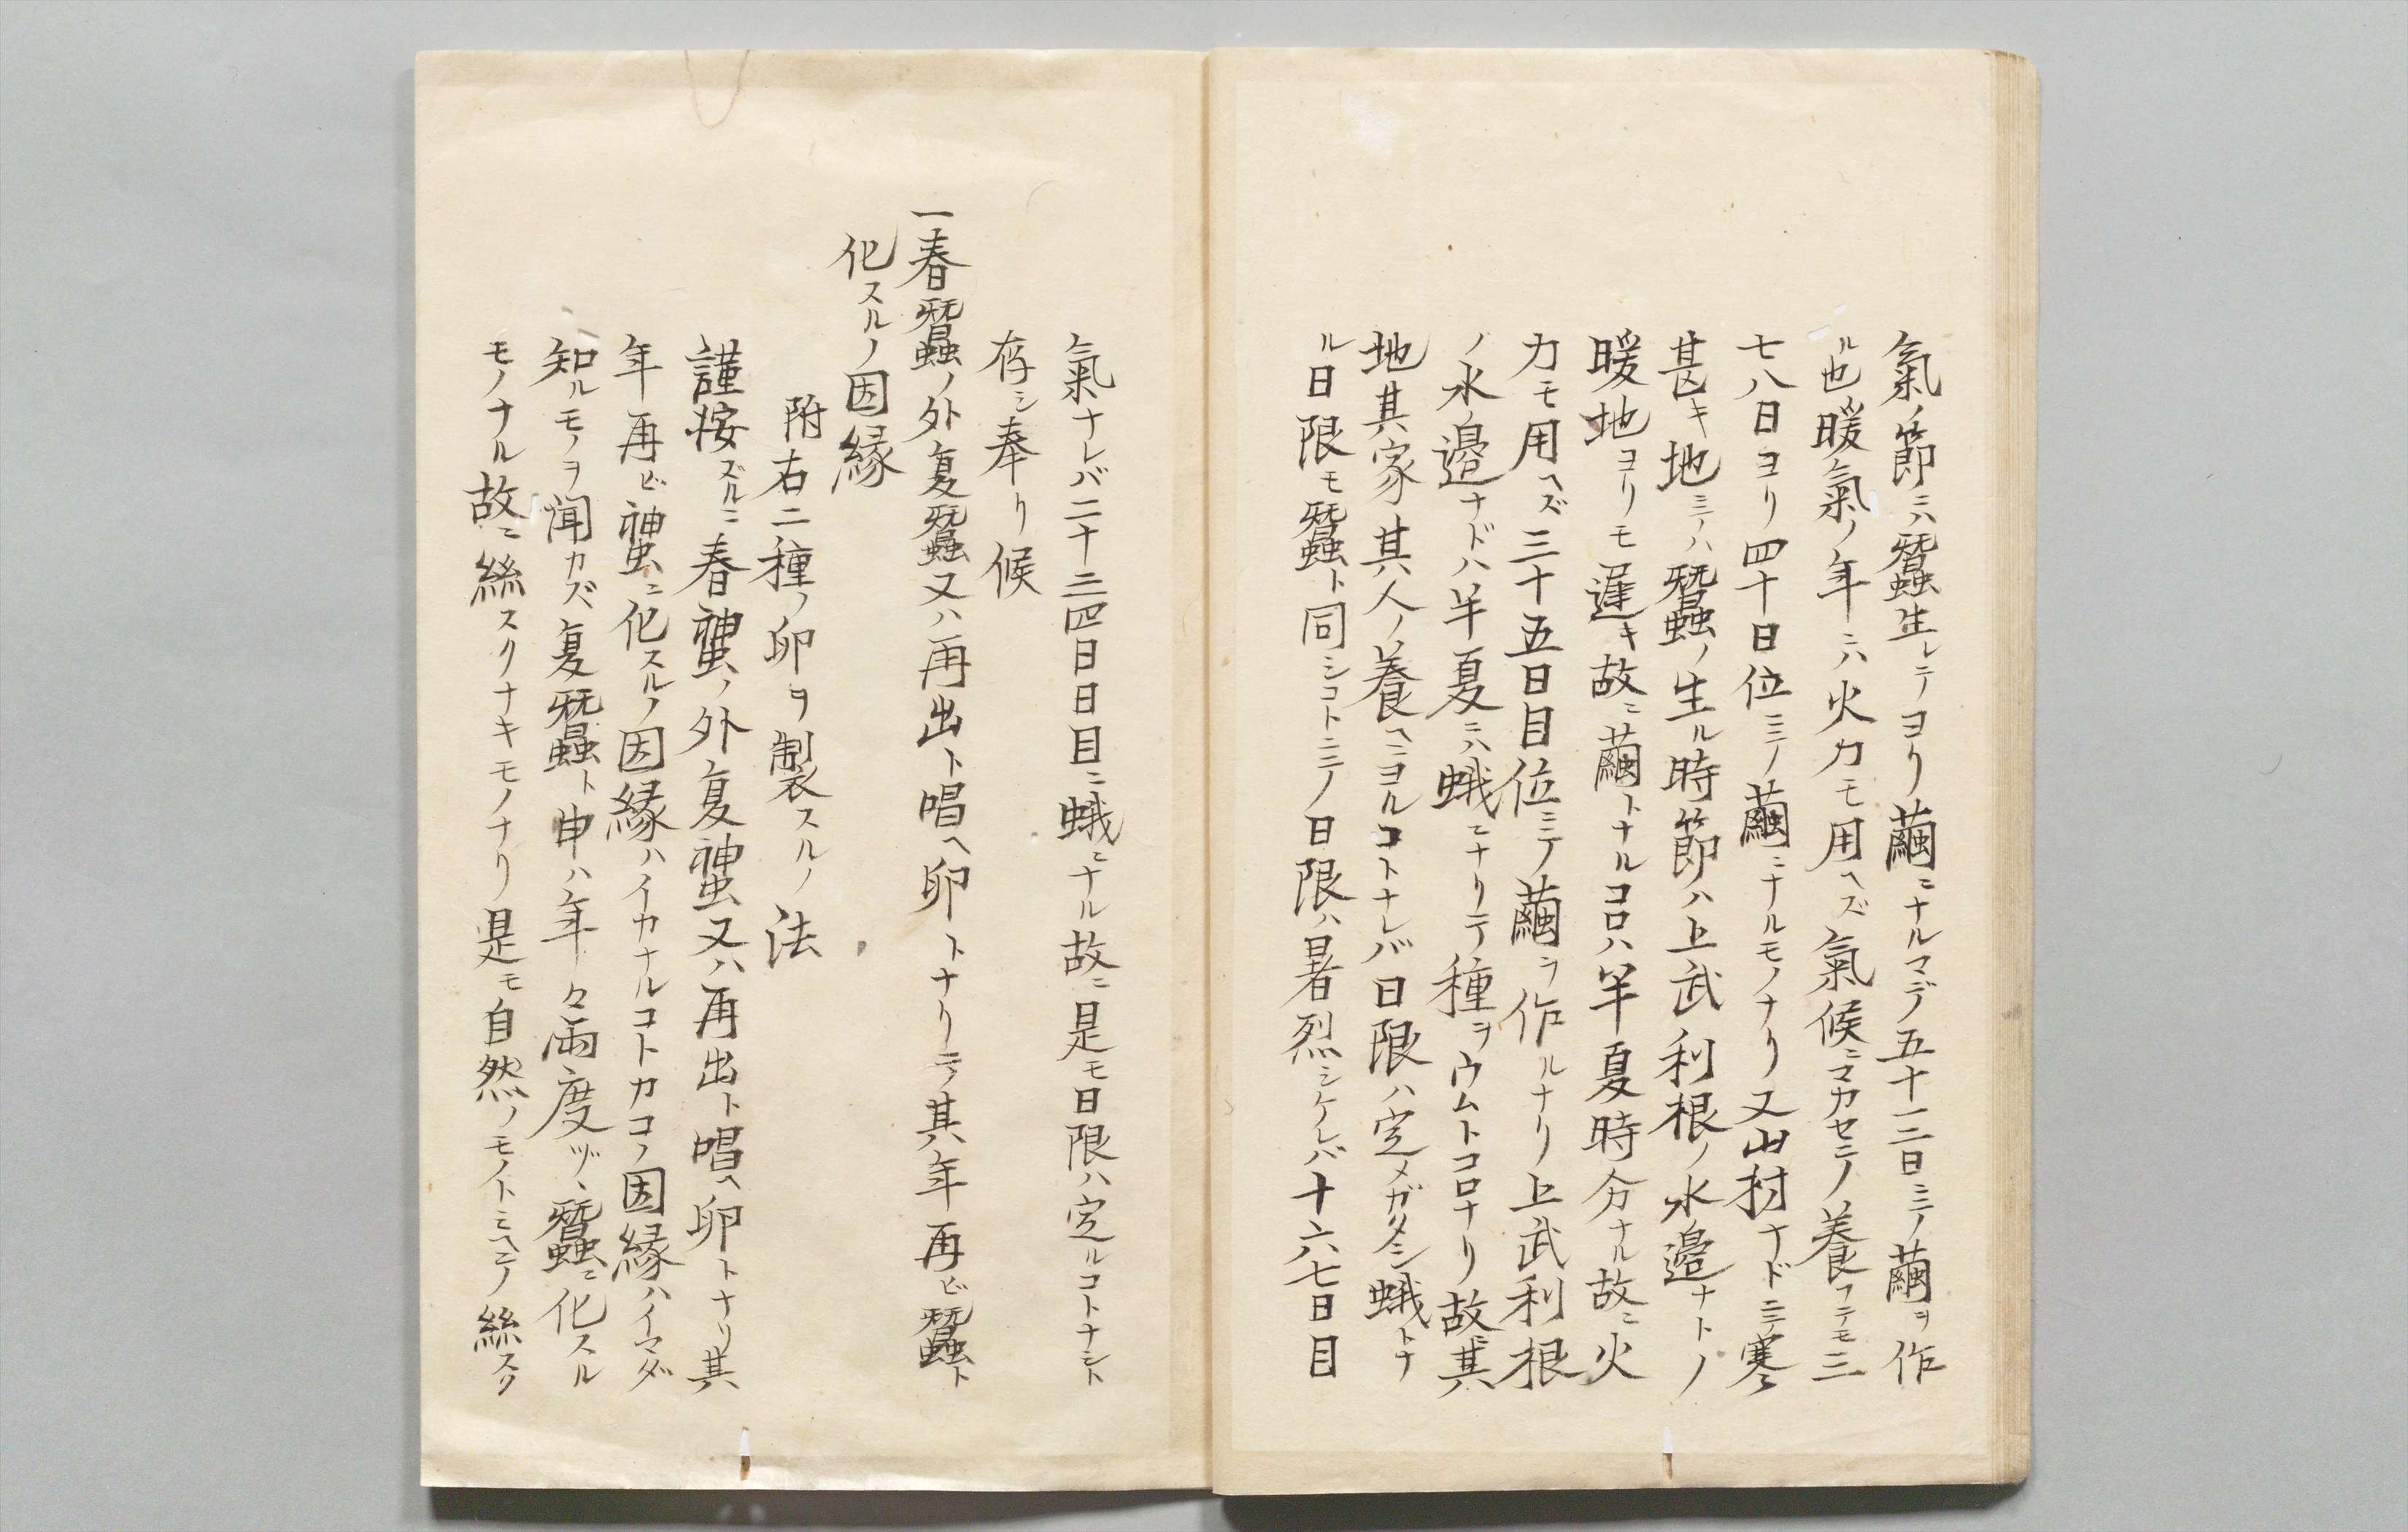 氣ノ節ニハ蠶生レテヨリ繭ニナルマデ五十二日ニ〆繭ヲ作
ル也暖氣ノ年ニハ火力モ用ヘズ氣候ニマカセニ〆養フテモ三
七八日ヨリ四十日位ニ〆繭ニナルモノナリ又山村ナドニテ寒
甚キ地ニ〆ハ蠶ノ生ル時節ハ上武利根ノ水邉ナトノ
暖地ヨリモ遅キ故ニ繭トナルコロハ半夏時分ナル故ニ火
力モ用ヘズ三十五日目位ニ〆繭ヲ作ルナリ上武利根
ノ水邉ナドハ半夏ニハ蛾ニナリテ種ヲウムトコロナリ故ニ其
地其家其人ノ養ヘニヨルコトナレバ日限ハ定メガタシ蛾トナ
ル日限モ蠶ト同シコトニ〆日限ハ暑烈シケレバ十六七日目
氣ナレバ二十三四日日目ニ蛾ニナル故ニ是モ日限ハ定ルコトナシト
存シ奉リ候
一春蠶ノ外夏蠶又ハ再出ト唱ヘ卵トナリテ其年再ビ蠶ト
化スルノ因縁
附右二種ノ卵ヲ製スルノ法
謹按ズルニ春蝩ノ外夏蝩又ハ再出ト唱ヘ卵トナリ其
年再ビ蝩ニ化スルノ因縁ハイカナルコトカコノ因縁ハイマダ
知ルモノヲ聞カズ夏蠶ト申ハ年々両度ヅヽ蠶ニ化スル
モノナル故ニ絲スクナキモノナリ是モ自然ノモノトミヘニ〆絲スク